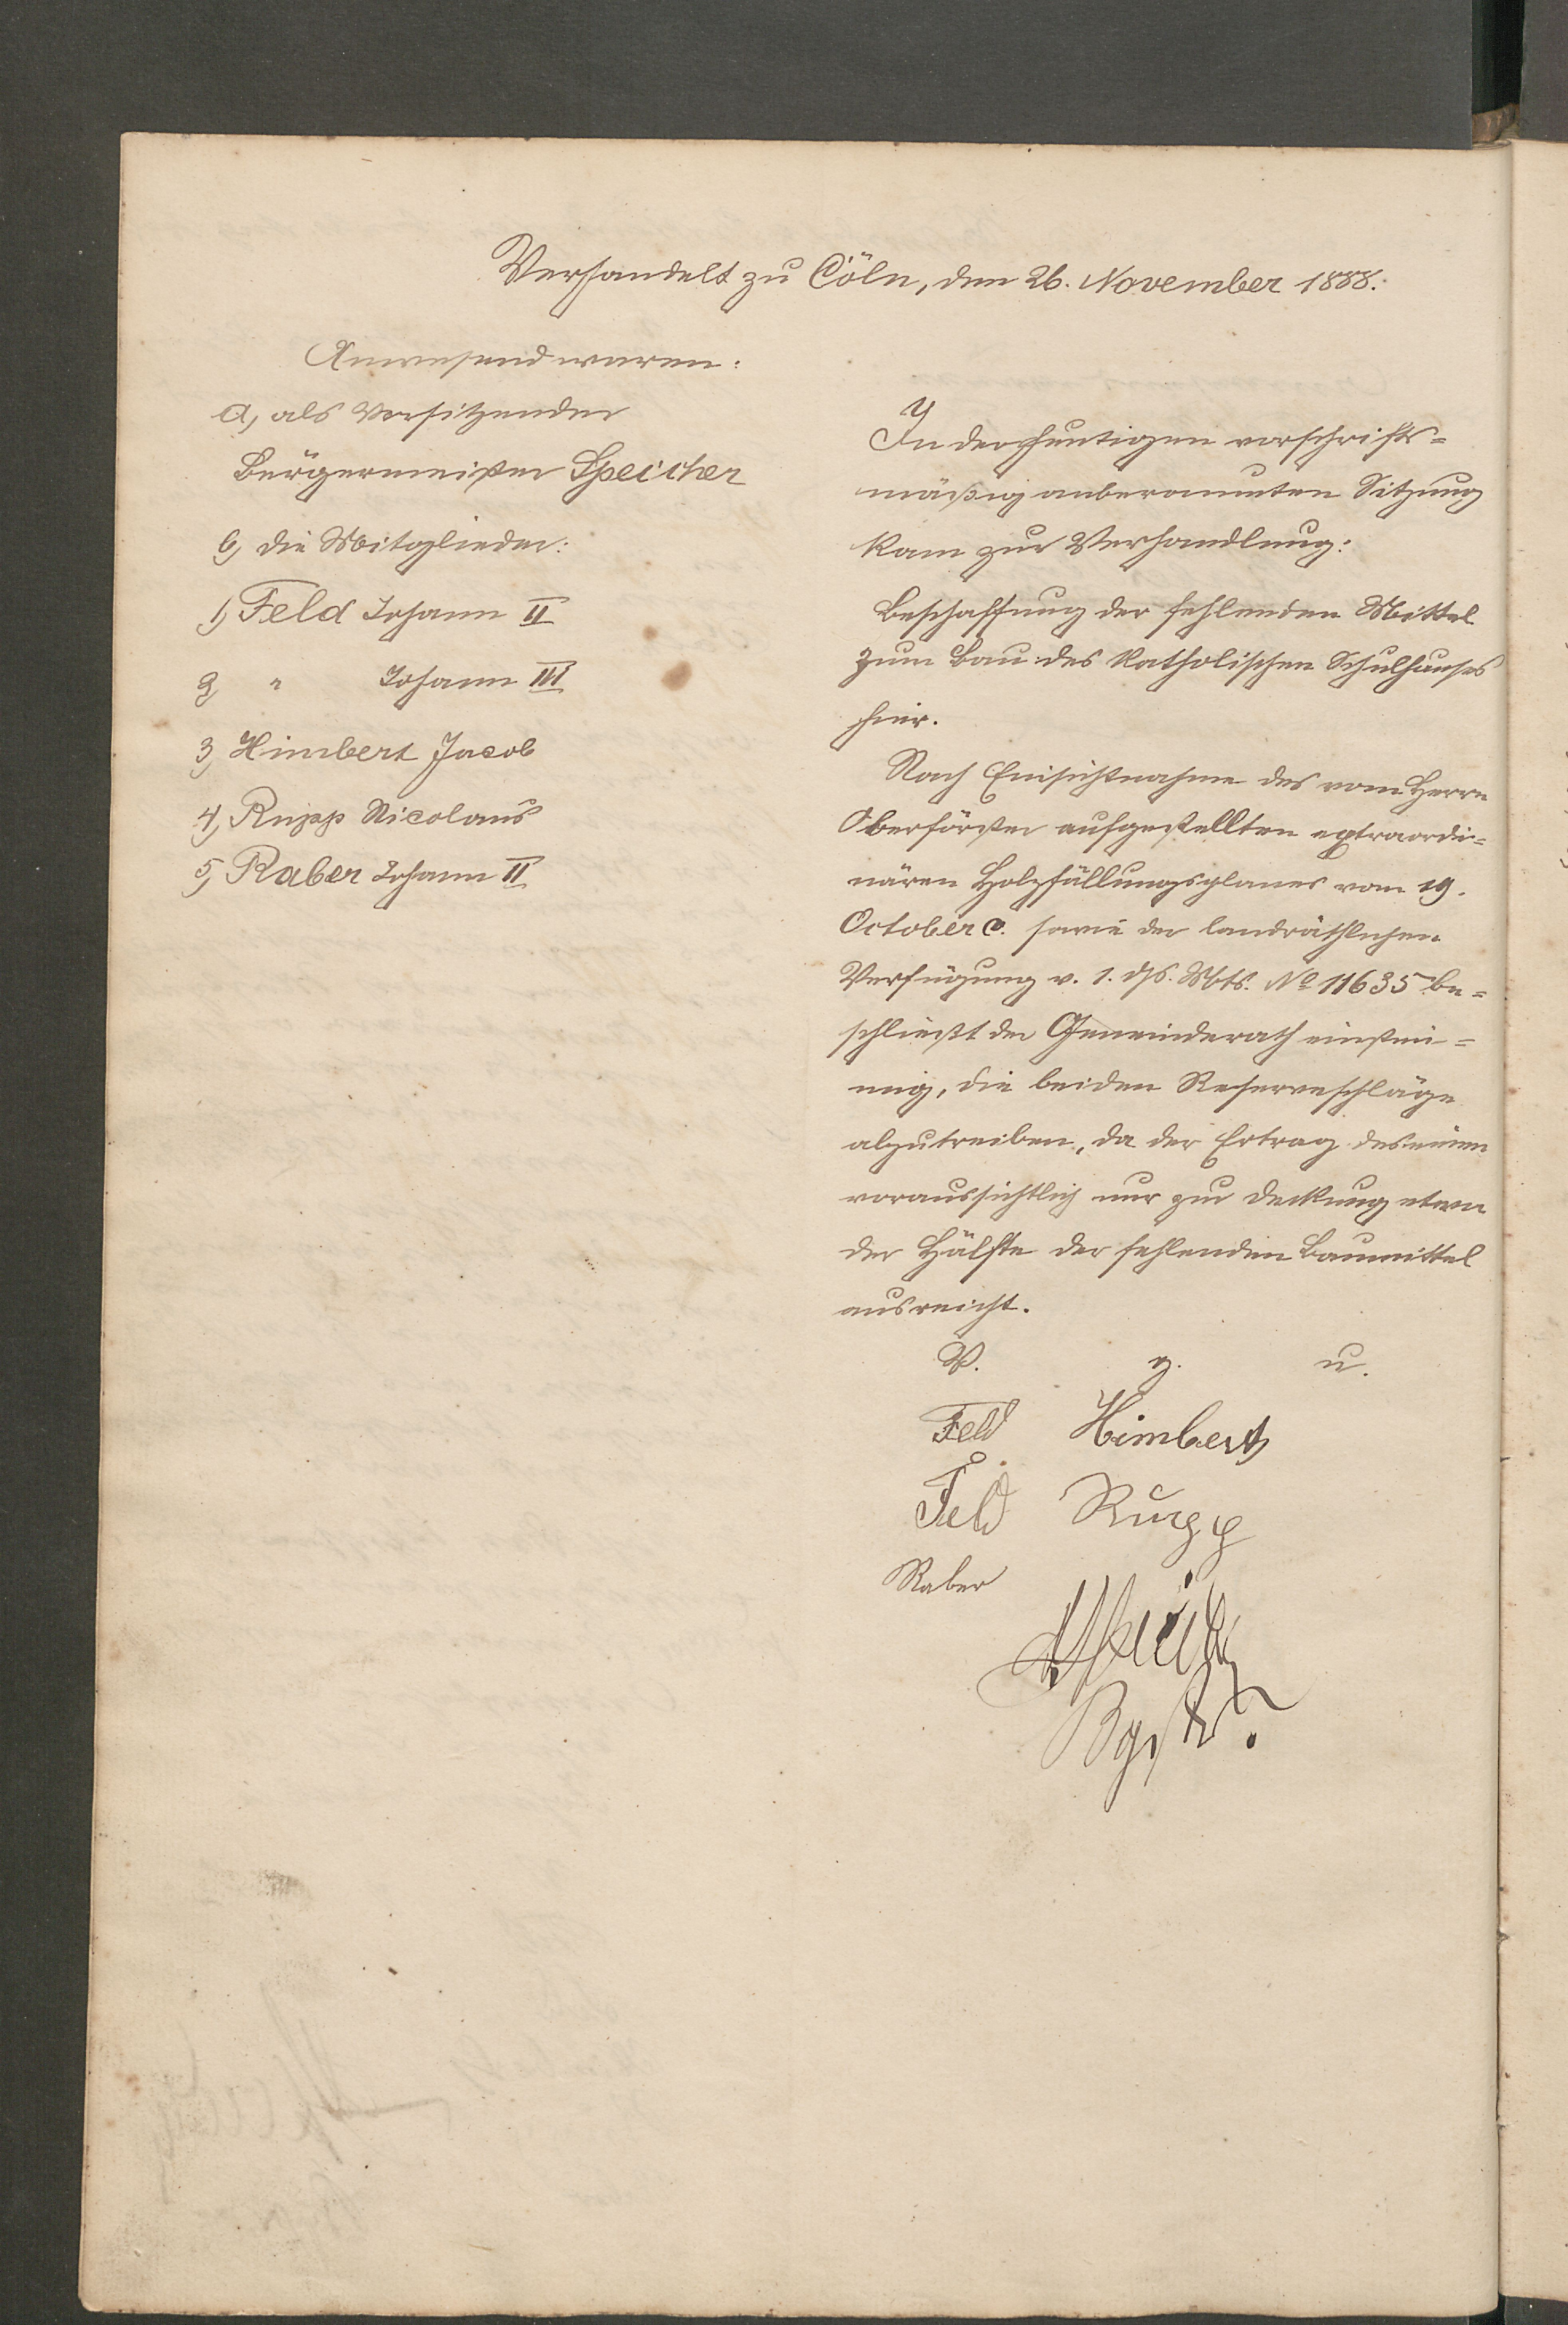 Verhandelt zu Cöln, den 26. November 1888.
Anwesend waren:
a, als Vorsitzender
Bürgermeister Speicher
b, die Mitglieder:
1, Feld Johann II
2, " Johann III
3, Himbert Jacob
4, Rupp Nicolaus
5, Raber Johann II
In der heutigen vorschrifts=
mäßig anberaumten Sitzung
kam zur Verhandlung:
Beschaffung der fehlenden Mittel
zum Bau des katholischen Schulhauses
hier.
Nach Einsichtnahme des vom Herrn
Oberförster aufgestellten extraordi=
nären Holzfällungsplanes vom 19.
October c. sowie der landräthlichen
Verfügung v. 1. ds. Mts. No 11635 be=
schließt der Gemeinderath einstim=
mig, die beiden Reserveschläge
abzutreiben, da der Ertrag des einen
voraussichtlich nur zur Deckung etwa
der Hälfte der fehlenden Baumittel
ausreicht.
V. g. u.
Feld Himbert
Feld Rupp
Raber
Speicher
Bgstr.